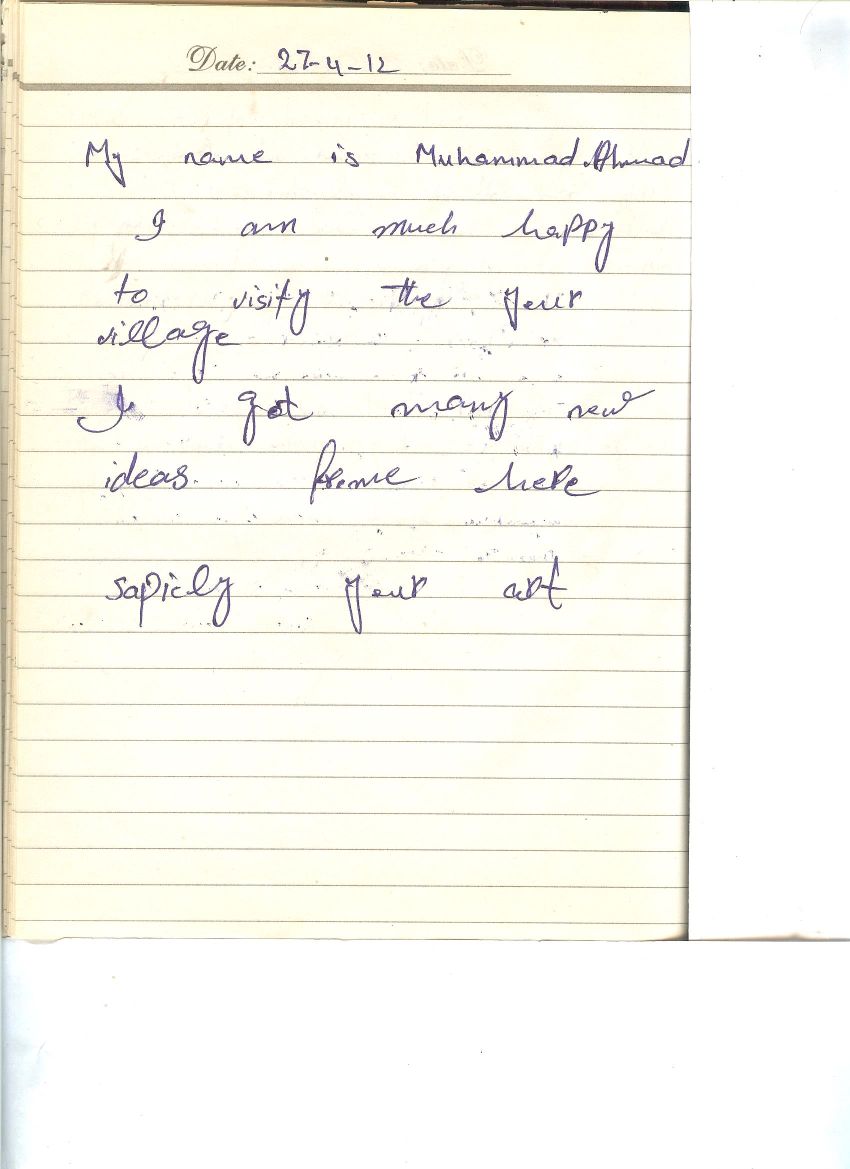 Date: 27-4-12
My name is Muhammad Ahmad
I am much happy
to visity the your
village
I got many new
ideas frome here
sapicly your art